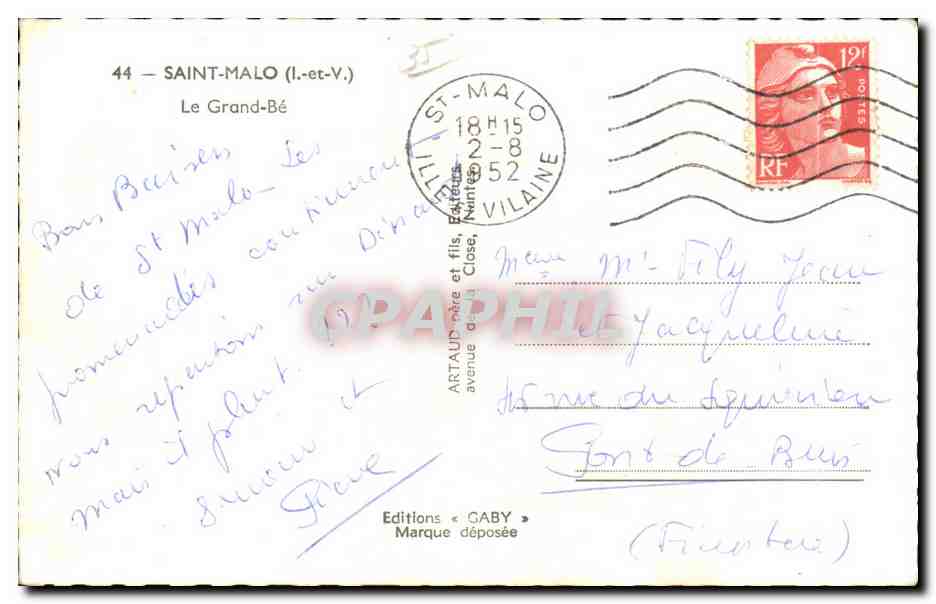 44 — SAINT-MALO (I.-et-V.)
Le Grand-Bé
35
ST-MALO
18H15
2-8
1952
ILLE ET VILAINE
12f
POSTES
RF
Bons Baisers
de St Malo. Les
promenades continuent.
nous repartons sur Dinard
mais il pleut.
et
Pierre
ARTAUD père et fils, Editeurs
avenue de la Close, Nantes
CPAPHIL
Mr Fily Jean
et Jacqueline
rue du
Pont de Buis
(Finistère)
Editions « GABY »
Marque déposée